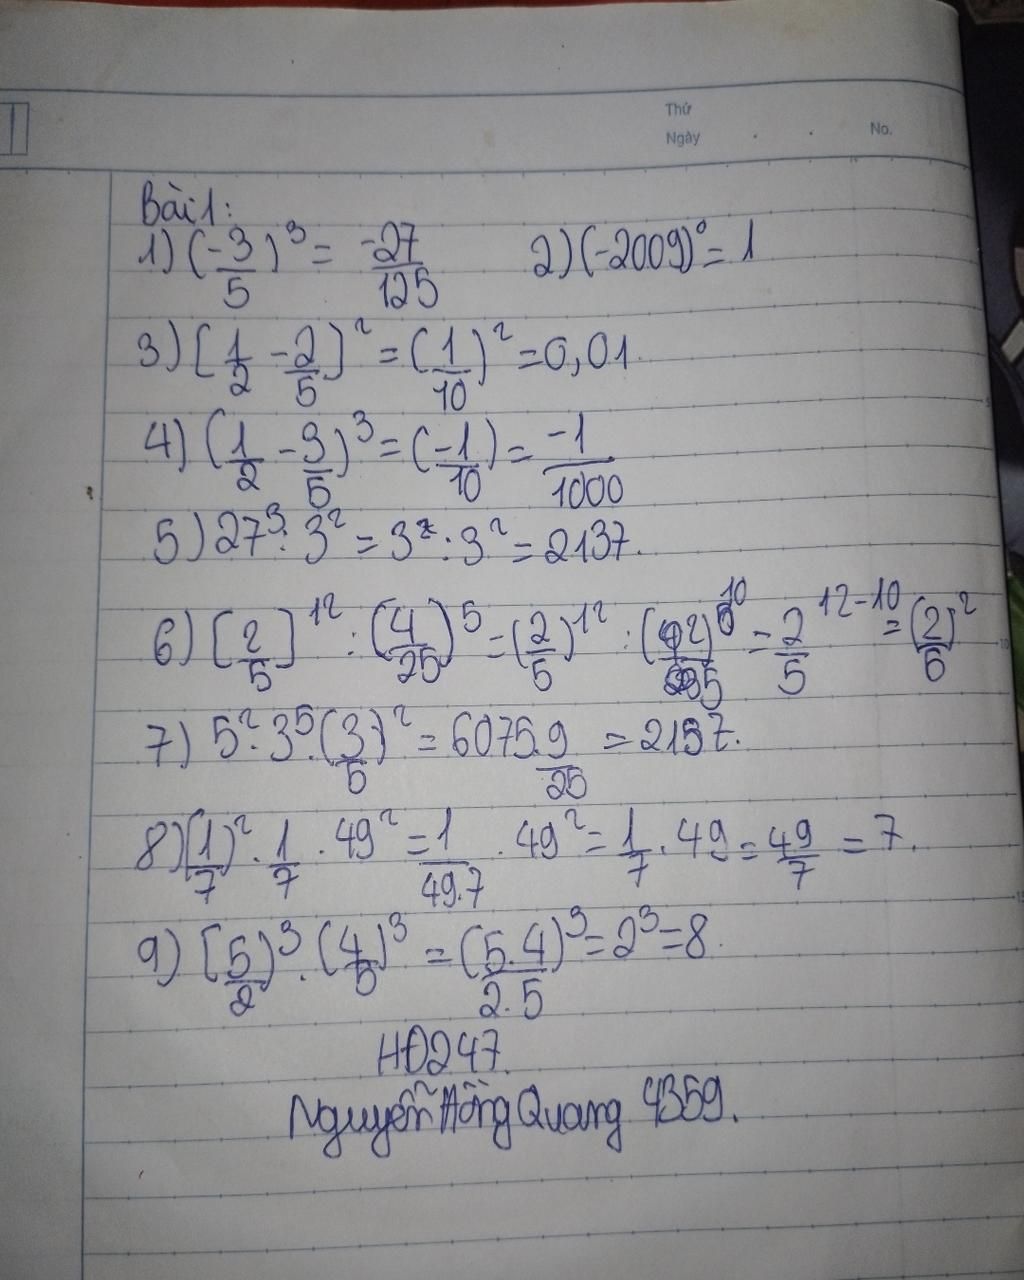 Thứ
Ngày . . No.
Bài 1:
1) (-3/5)³ = -27/125 2) (-2009)⁰ = 1
3) [1/2 - 2/5]² = (1/10)² = 0,01.
4) (1/2 - 3/5)³ = (-1/10) = -1/1000
5) 27³ : 3² = 3⁷ : 3² = 2137.
6) [2/5]¹² : (4/25)⁵ = (2/5)¹² : (2/5)¹⁰ = 2/5 ¹²⁻¹⁰ = (2/5)²
7) 5² . 3⁵ . (3/5)² = 6075 . 9/25 = 2187.
8) (1/7)² . 1/7 . 49² = 1/49.7 . 49² = 1/7 . 49 = 49/7 = 7.
9) [5/2)³ . (4/5)³ = (5.4/2.5)³ = 2³ = 8.
HĐ247.
Nguyễn Hồng Quang 4359.